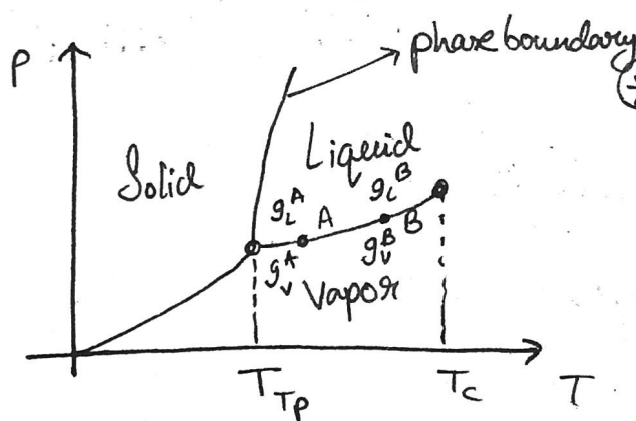 P
phase boundary
Liquid
Solid
g_L^A
g_L^B
A
B
g_V^A
g_V^B
Vapor
T_Tp
T_c
T